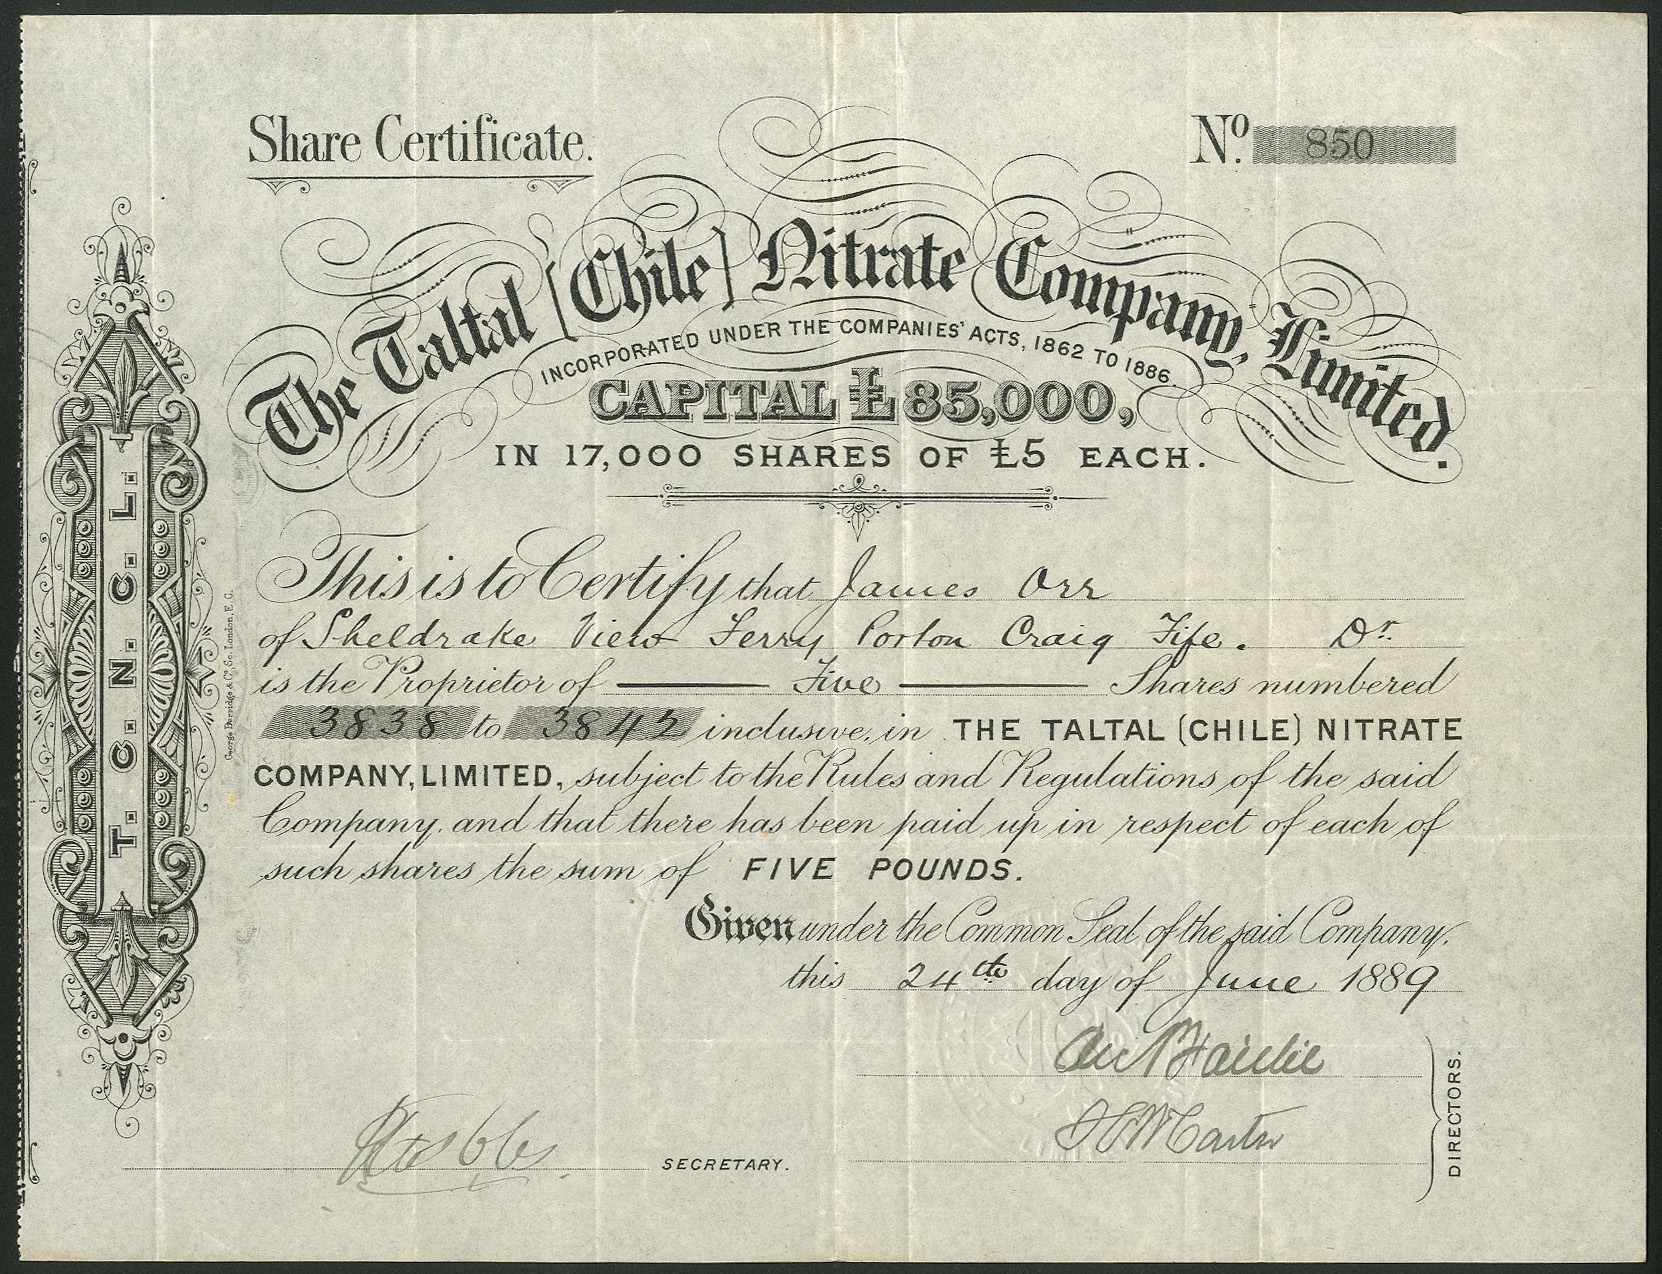 Share Certificate.
No. 850
The Taltal [Chile] Nitrate Company, Limited.
INCORPORATED UNDER THE COMPANIES' ACTS, 1862 TO 1886.
CAPITAL £85,000,
IN 17,000 SHARES OF £5 EACH.
T. C. N. C. L.
George Durridge & Co., Sc. London, E.C.
This is to Certify that James Orr
of Sheldrake View Ferry Porton Craig Fife. Dr.
is the Proprietor of Five Shares numbered
3838 to 3842 inclusive, in THE TALTAL (CHILE) NITRATE
COMPANY, LIMITED, subject to the Rules and Regulations of the said
Company, and that there has been paid up in respect of each of
such shares the sum of FIVE POUNDS.
Given under the Common Seal of the said Company,
this 24th day of June 1889
SECRETARY.
DIRECTORS.